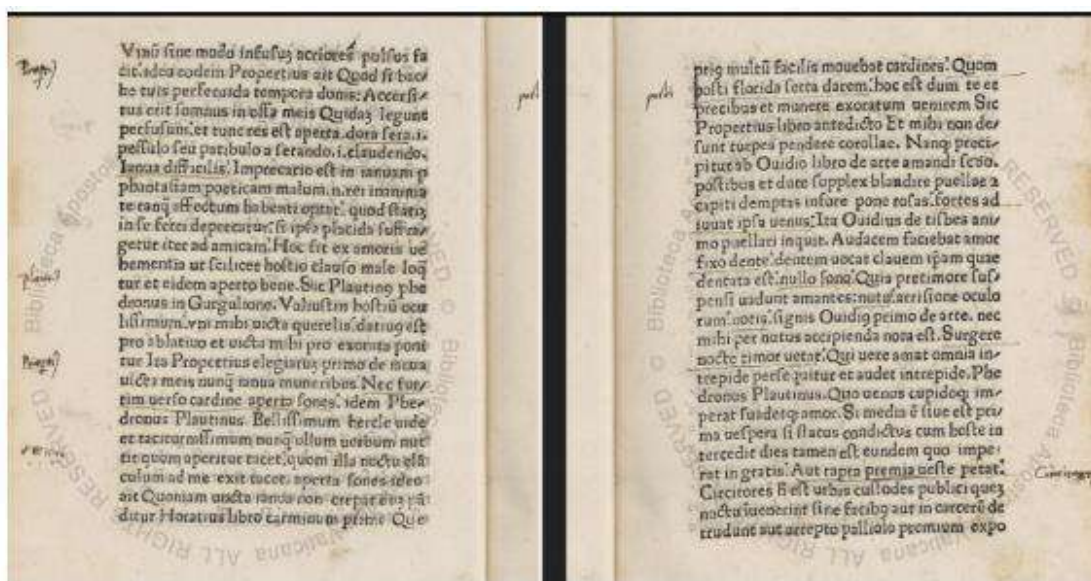 Vinũ sine modo infusuʒ acriores pulsus fa
cit. idea eodem Propertius ait Quod si hac/
be tuis perfecuida tempora donis: Accersi/
tus erit somnus in ossa meis Quidaʒ legunt
perfusum. et tunc res est aperta. dora sera. i.
pessulo seu patibulo a serando. i. claudendo.
Ianua difficilis. Imprecatio est in ianuam p
phantasiam poeticam malum. n. rei inanima
te tanq̃ affectum habenti optat. quod statiʒ
in se ferri deprecatur. si ipsa placida suffra/
getur iter ad amicam. Hoc fit ex amoris ue
hementia ut scilicet hostio clauso male loq̃
tur et eidem aperto bene. Sic Plautinꝰ phe
dronus in Gurgulione. Valuistin hostiũ ocu
lissimum. vni mihi uicta querelis. datiuꝰ est
pro ablatiuo et uicta mihi pro exorata poni
tur Ita Propertius elegiaruʒ primo de ianua
uicta meis nunq̃ ianua muneribus. Nec fur/
tim uerso cardine aperto sones. idem Phe/
dronus Plautinus. Bellissimum hercle uide
et taciturnissimum nunq̃ ullum uerbum mut
tit quom aperitur tacet. quom illa noctu clã
culum ad me exit tacet. aperta sones ideo
ait Quoniam uncta ianua non crepat cũ pã
ditur Horatius libro carminum primo Que
prius multũ facilis mouebat cardines. Quom
posti florida serta darem. hoc est dum te et
precibus et munere exoratum uenirem Sic
Propertius libro antedicto Et mihi non de/
sunt turpes pendere corollae. Nanq̃ preci/
pitur ab Ouidio libro de arte amandi scdo.
postibus et dare supplex blandire puellae
capiti demptas in fore pone rosas. fortes ad
iuuat ipsa uenus. Ita Ouidius de tisbes ani
mo puellari inquit. Audacem faciebat amor
fixo dente. dentem uocat clauem ip̃am quae
dentata est. nullo sono. Quia pretimore sus/
pensi uadunt amantes: nutu. arrisione oculo
rum. notis. signis Ouidiꝰ primo de arte. nec
mihi per nutus accipienda nota est. Surgere
nocte timor uetat. Qui uere amat omnia in/
trepide persequitur et audet intrepide. Phe
dronus Plautinus. Quo uenus cupidoq̃ im/
perat suadetq̃ amor. Si media ẽ siue est pri/
ma uespera si status condictus cum hoste in
tercedit dies tamen est eundem quo impe/
rat in gratis. Aut rapta premia ueste petat.
Circitores ñ est urbis custodes publici queʒ
noctu iuenerint sine facibꝰ aut in carcerũ de
trudunt aut accepto palliolo premium expo